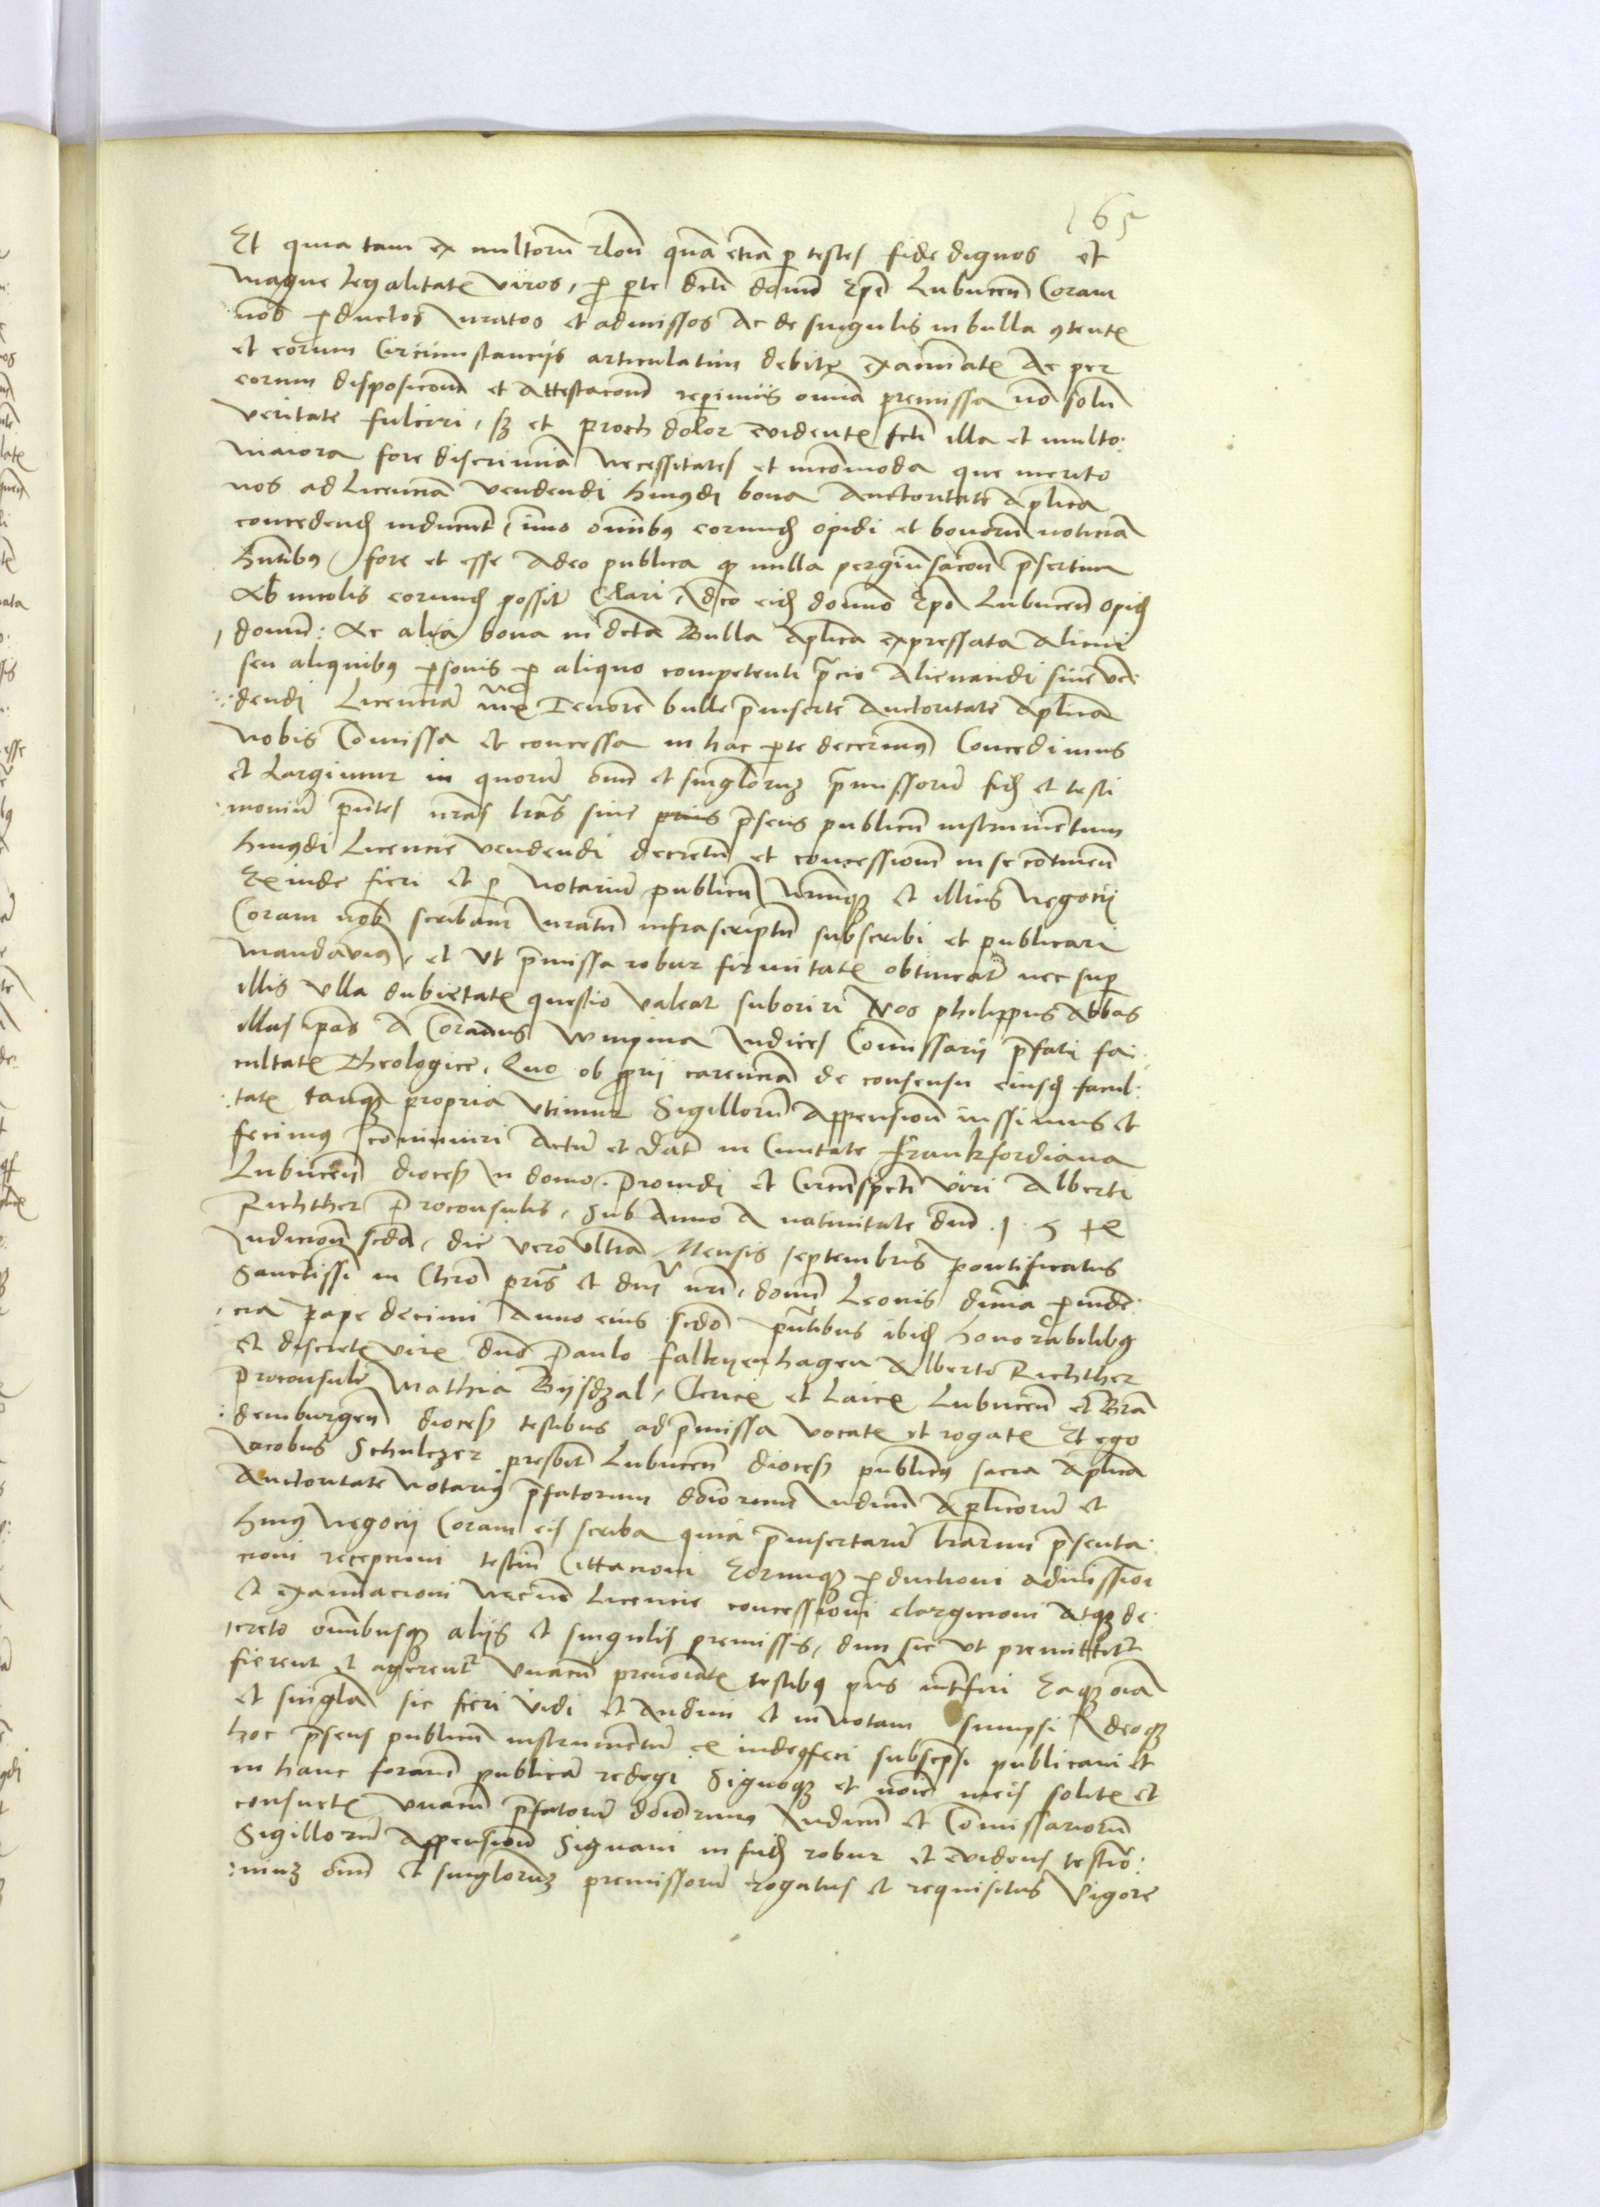 165
Et quia tam ex multorū rlone quā etiā p testes fide dignos et
magne legalitatꝭ viros, p pte dcti domī Epī Lubucen Coram
nob pductos Iuratos et admissos Ac de singulis in bulla 9tentꝭ
et eorum Circumstancijs articulatim debite examinatꝭ Ac per
eorum disposicōm et Attestacōm reperimus omia premissa nō solū
veritate fulciri, sz et proch dolor evidentꝭ fcti illa et multo
maiora fore discrimina necessitates et incōmoda que merito
nos ad Licenciā vendendi hmōdi bona Auctoritate Aplica
concedend inducunt, imo omibus eorund opidi et bonorū noticiā
hntibus, fore et esse Adeo publica q nulla pergiusacōn p̄sertim
Ab incolis eorund possit Celari, Idco eid domno Epo Lubucen Opid
domū: Ac alia bona in dcta Bulla Aplica expressata Alicui
seu aliquibus psonis p aliquo competenti p̄cio Alienandi sive ven
dendi Licenciam iux Tenorē bulle p̄inserte Auctoritate Aplica
Nobis Cōmissa et concessa in hac pte decernimus Concedimus
et Largimur in quorū oīm et singlorz p̄missorū fid et testi
moniū pn̄tes nr̄as lr̄as sive p̄sens publicū instrumentum
hmōdi Licencie vendendi decretū et concessionē in se continen
Exinde fieri et p Notariū publicū nrmqz et illius Negocij
Coram nob scribam Iuratū infrascriptū subscribi et publicari
mandavimus, et Ut p̄missa robur firmitatꝭ obtineāt nec sup
illis Ulla dubietatꝭ questio valeat suboriri Nos philippus Abbas
illius A Conradus Wimpina Iudices Commissarij p̄fati fa
cultatꝭ theologice, Quo ob prij carenciā de consensu eiusd facul
tatꝭ tanqz propria Utimur Sigillorū Appensionē iussimus et
fecimus cōmuniri Actū et Datū in Civitate Frankfordiana
Lubucen dioces In domo Providi et Circūspecti viri Alberti
Richther Proconsulis, Sub Anno A nativitate dnī
Indicione scda, die vero ultia Mensis septembris pontificatus
Sanctissi in Chro pris et dnī nri, domī Leonis divina pvide
cia pape decimi Anno eius scdo pn̄tibus ibid honorabilibus
et discretꝭ viris dno Paulo falkyenhagen Alberto Richther
Proconsule Mathia Bijsdzal, Clericꝭ et Laicꝭ Lubucen et Bran
demburgen dioces testibus ad p̄missa vocatꝭ et rogatꝭ Et ego
Iacobus Schulczer presbit Lubucen dioces publicus sacra Aplica
Auctoritate Notarius p̄fatorum dōiorum Iudicū Aplicorū et
huius Negocij Coram eis scriba quia p̄insertarū lrarum p̄senta
cioni recepcioni testiū Cittacioni Eorumqz pductioni admissioi
et examinacioni Necnō Licencie concessioni elargicioni Atqz de
creto omibusqz alijs et singulis premissis, dum sic ut premittitur
fierent et agerent Unacū prenoiatꝭ testibus pns interfui Eaqz oīa
et singla sic fieri vidi et Audivi et in Notam sumpsi Ideoqz
hoc p̄sens publicū instrumentū exinde 9feci subscpsi publicavi et
in hanc formam publicā redegi Signoqz et noīe meis solitꝭ et
consuetꝭ Unacū p̄fatorū dōiorum Iudicū et Cōmissariorū
Sigillorū Appensionē Signavi in fid robur et evidens testīo
niuz oīm et singlorz premissorū rogatus et requisitus Vigore